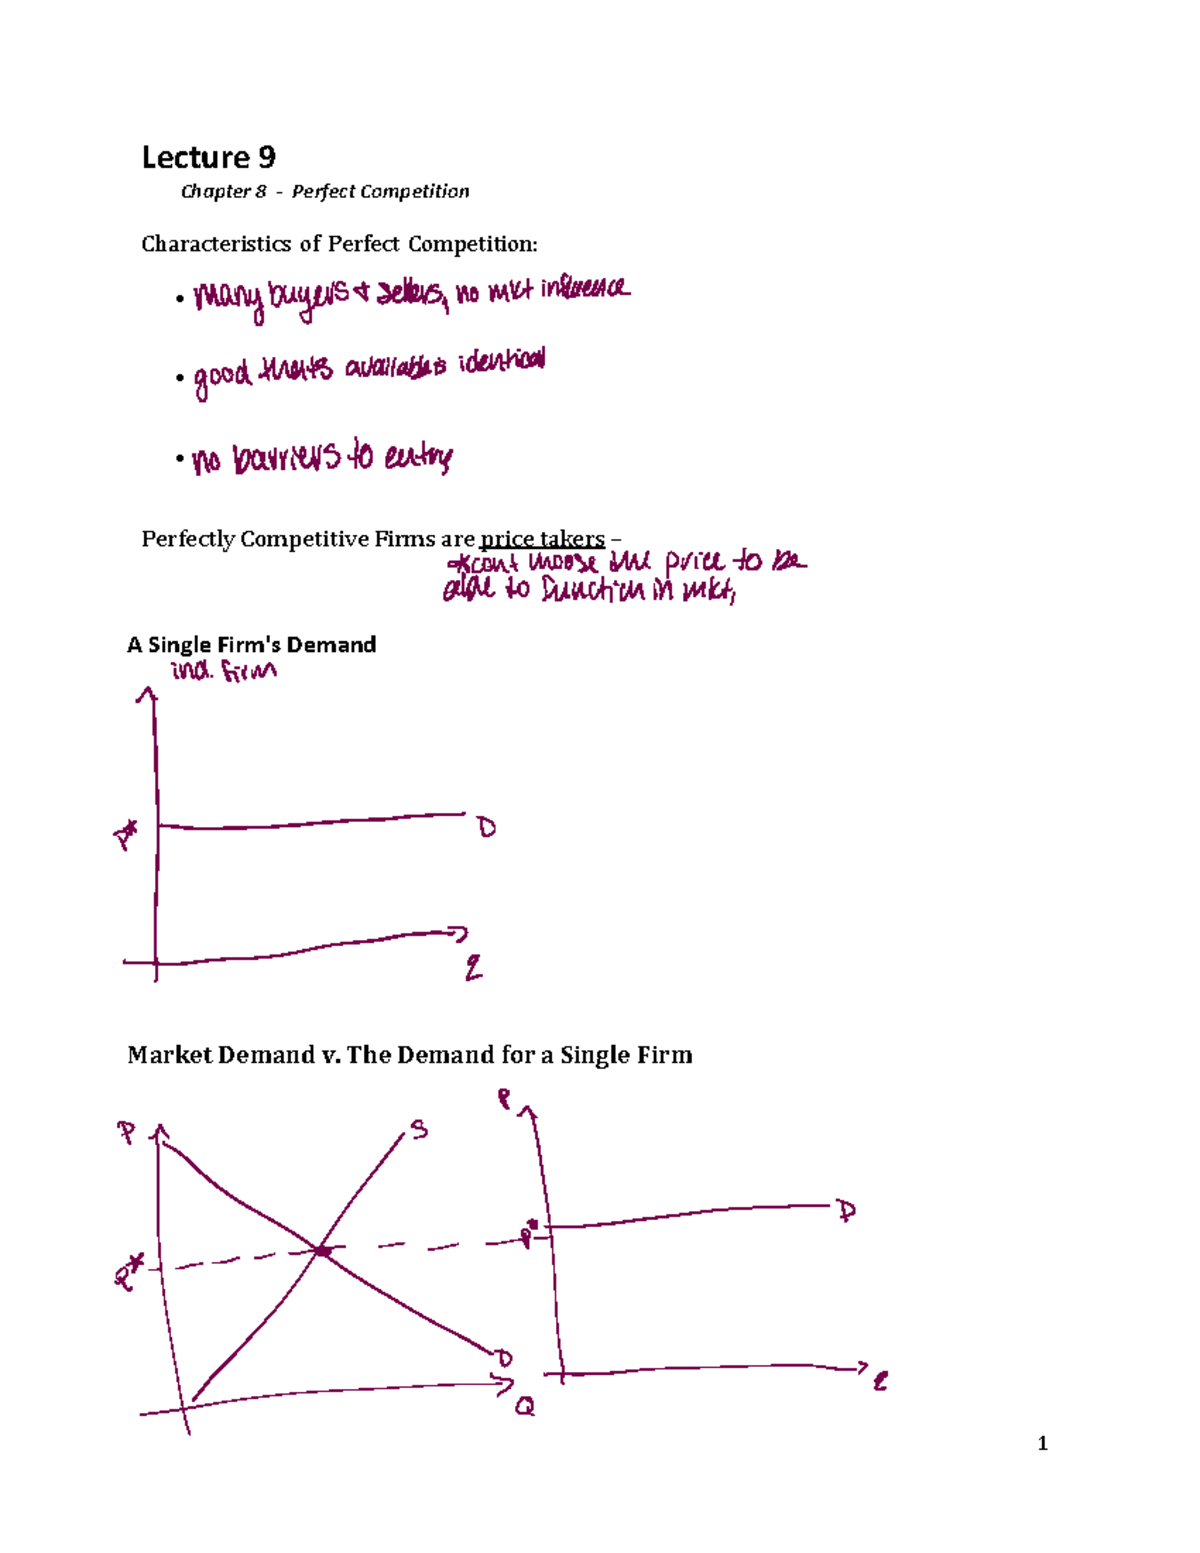 Lecture 9
Chapter 8 - Perfect Competition
Characteristics of Perfect Competition:
• many buyers & sellers, no mkt influence
• good thats available is identical
• no barriers to entry
Perfectly Competitive Firms are price takers –
*cant choose the price to be
able to function in mkt,
A Single Firm's Demand
ind. firm
P*
D
q
Market Demand v. The Demand for a Single Firm
P
P
S
D
P*
P*
D
Q
q
1